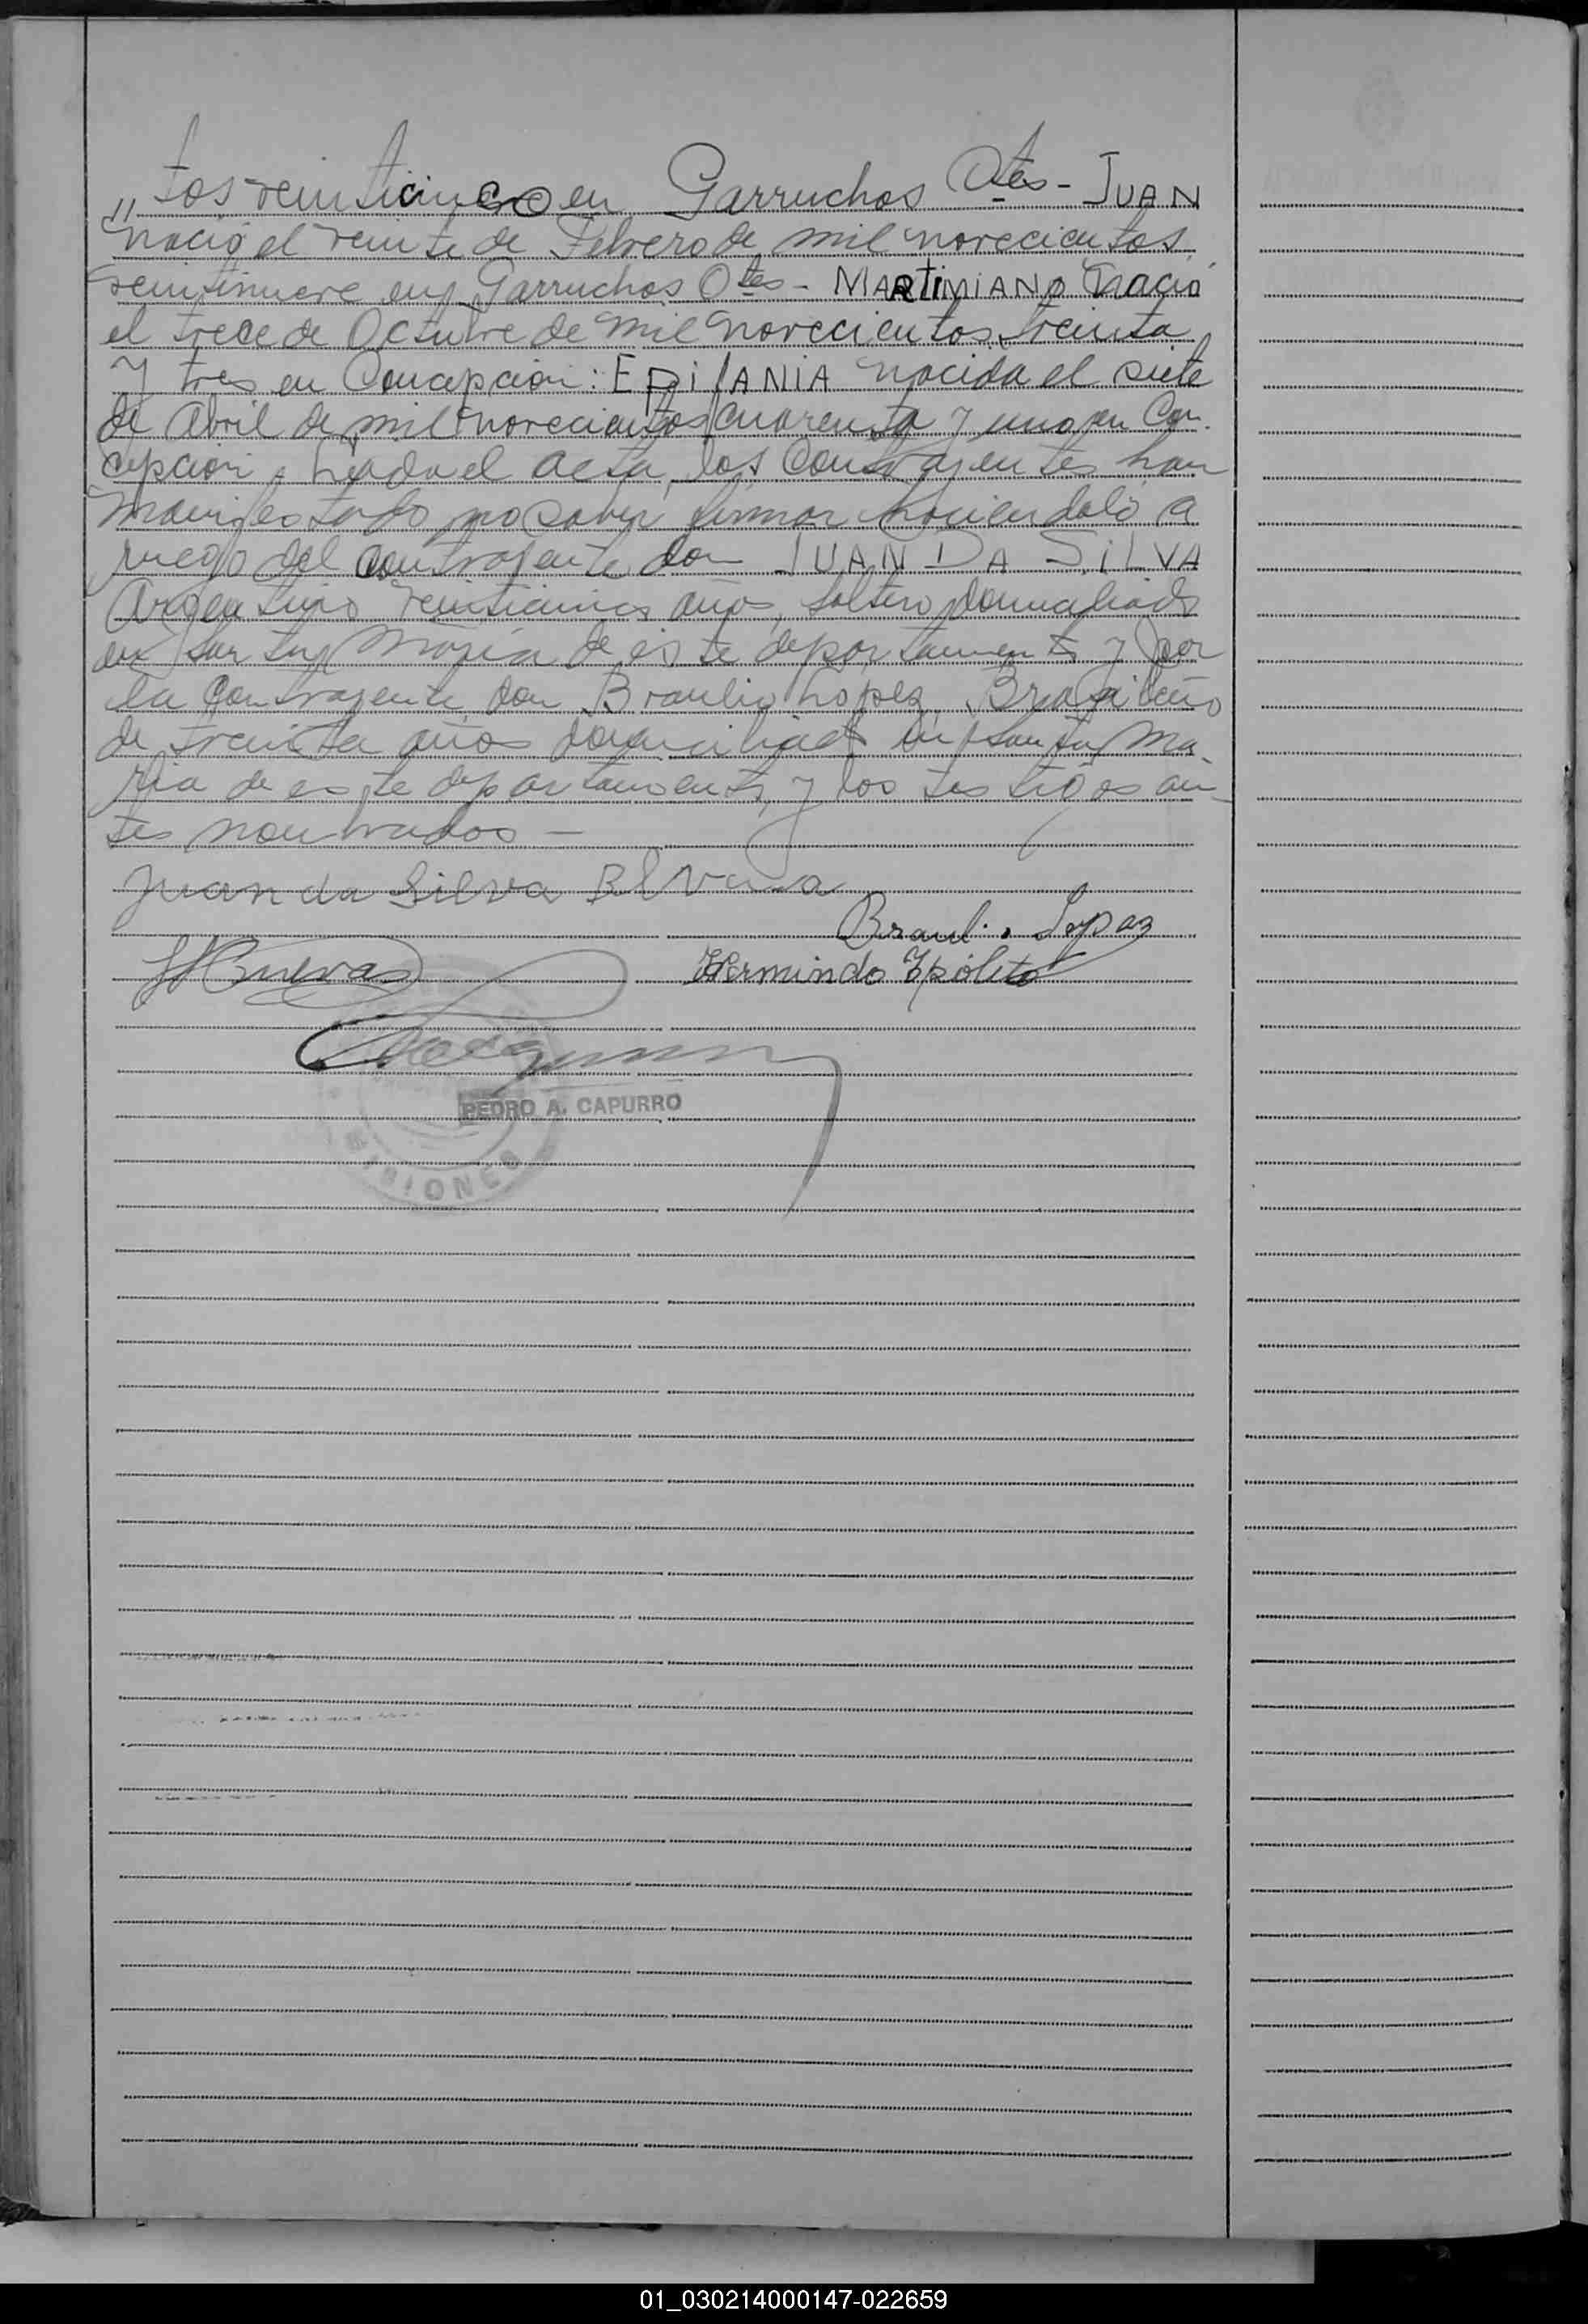 " tos veinticinco en Garruchos Ctes - JUAN
nació el veinte de Febrero de mil novecientos
veintinueve en Garruchos Ctes - MARTIMIANO nació
el trece de Octubre de mil novecientos treinta
y tres en Concepcion: EPIfANIA nacida el siete
de Abril de mil novecientos cuarenta y uno en Con-
cepcion. Leida el acta, los contrayentes han
manifestado no saber firmar haciendolo a
ruego del contrayente don JUAN DA SILVA
Argentino veinticinco años, soltero domiciliado
en Santa María de este departamento y por
la contrayente don Braulio Lopez, Brasileño
de treinta años domiciliado en Santa Ma-
ria de este departamento, y los testigos an-
tes nombrados —
Juan da Silva
Braulio Lopez
Cuevas
Hermindo Ypólito
PEDRO A. CAPURRO
MISIONES
01_030214000147-022659